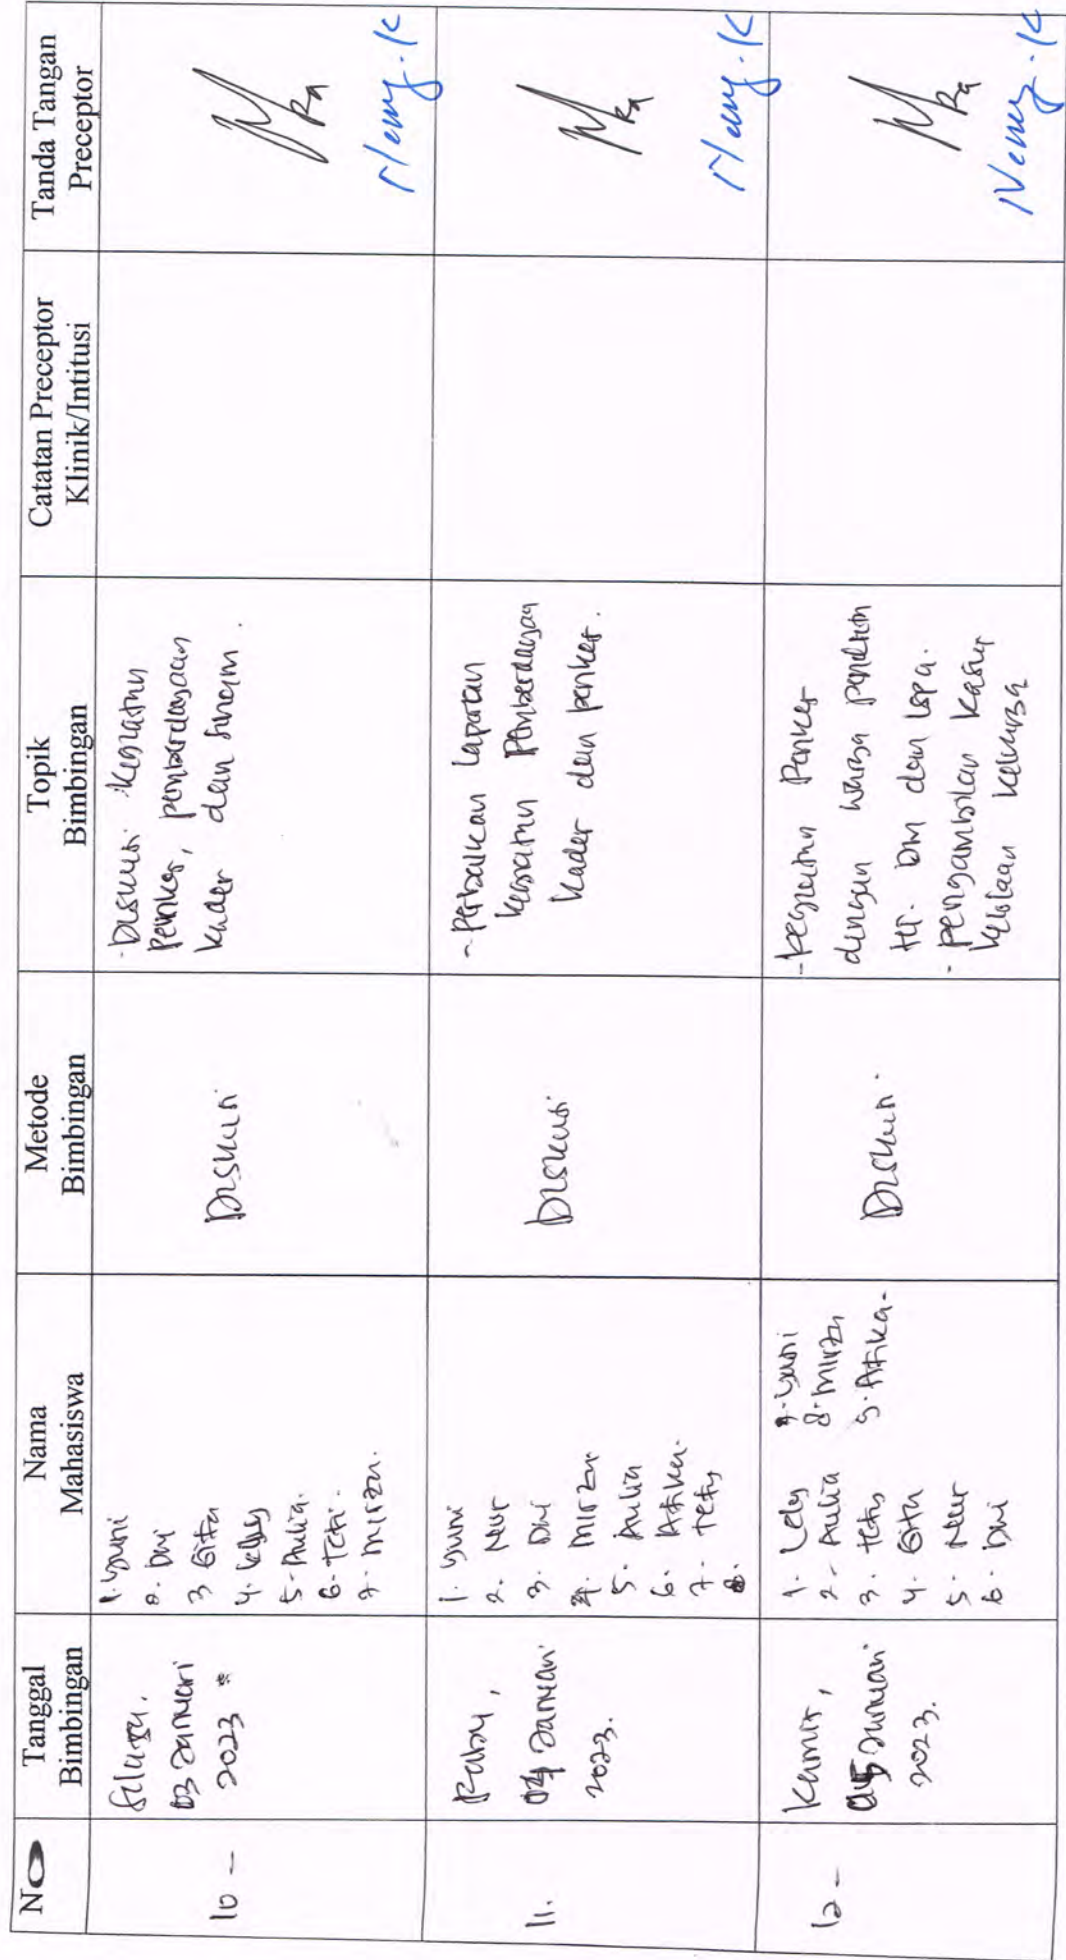 No
Tanggal
Bimbingan
Nama
Mahasiswa
Metode
Bimbingan
Topik
Bimbingan
Catatan Preceptor
Klinik/Intitusi
Tanda Tangan
Preceptor
10 -
Selasa,
03 Januari
2023
1. Yuni
2. Dwi
3 Gita
4. Lely
5. Aulia.
6. Teti.
7. Mirza.
Diskusi
- Diskusi kegiatan
Penkes, pemberdayaan
kader dan Senam.
11.
Rabu,
04 Januari
2023.
1. Yuni
2. Nur
3. Dwi
4. Mirza
5. Aulia
6. Atika.
7. Tety
8.
Diskusi
- Perbaikan Laporan
kegiatan Pemberdayaan
kader dan penkes.
12 -
Kamis,
05 Januari
2023.
1. Lely
2. Aulia
3. Tety
4. Gita
5. Nur
6. Dwi
7. Yuni
8. Mirza
9. Atika.
Diskusi.
- kegiatan Penkes
dengan warga penderita
HT. DM dan
- pengambilan kasus
kelolaan keluarga